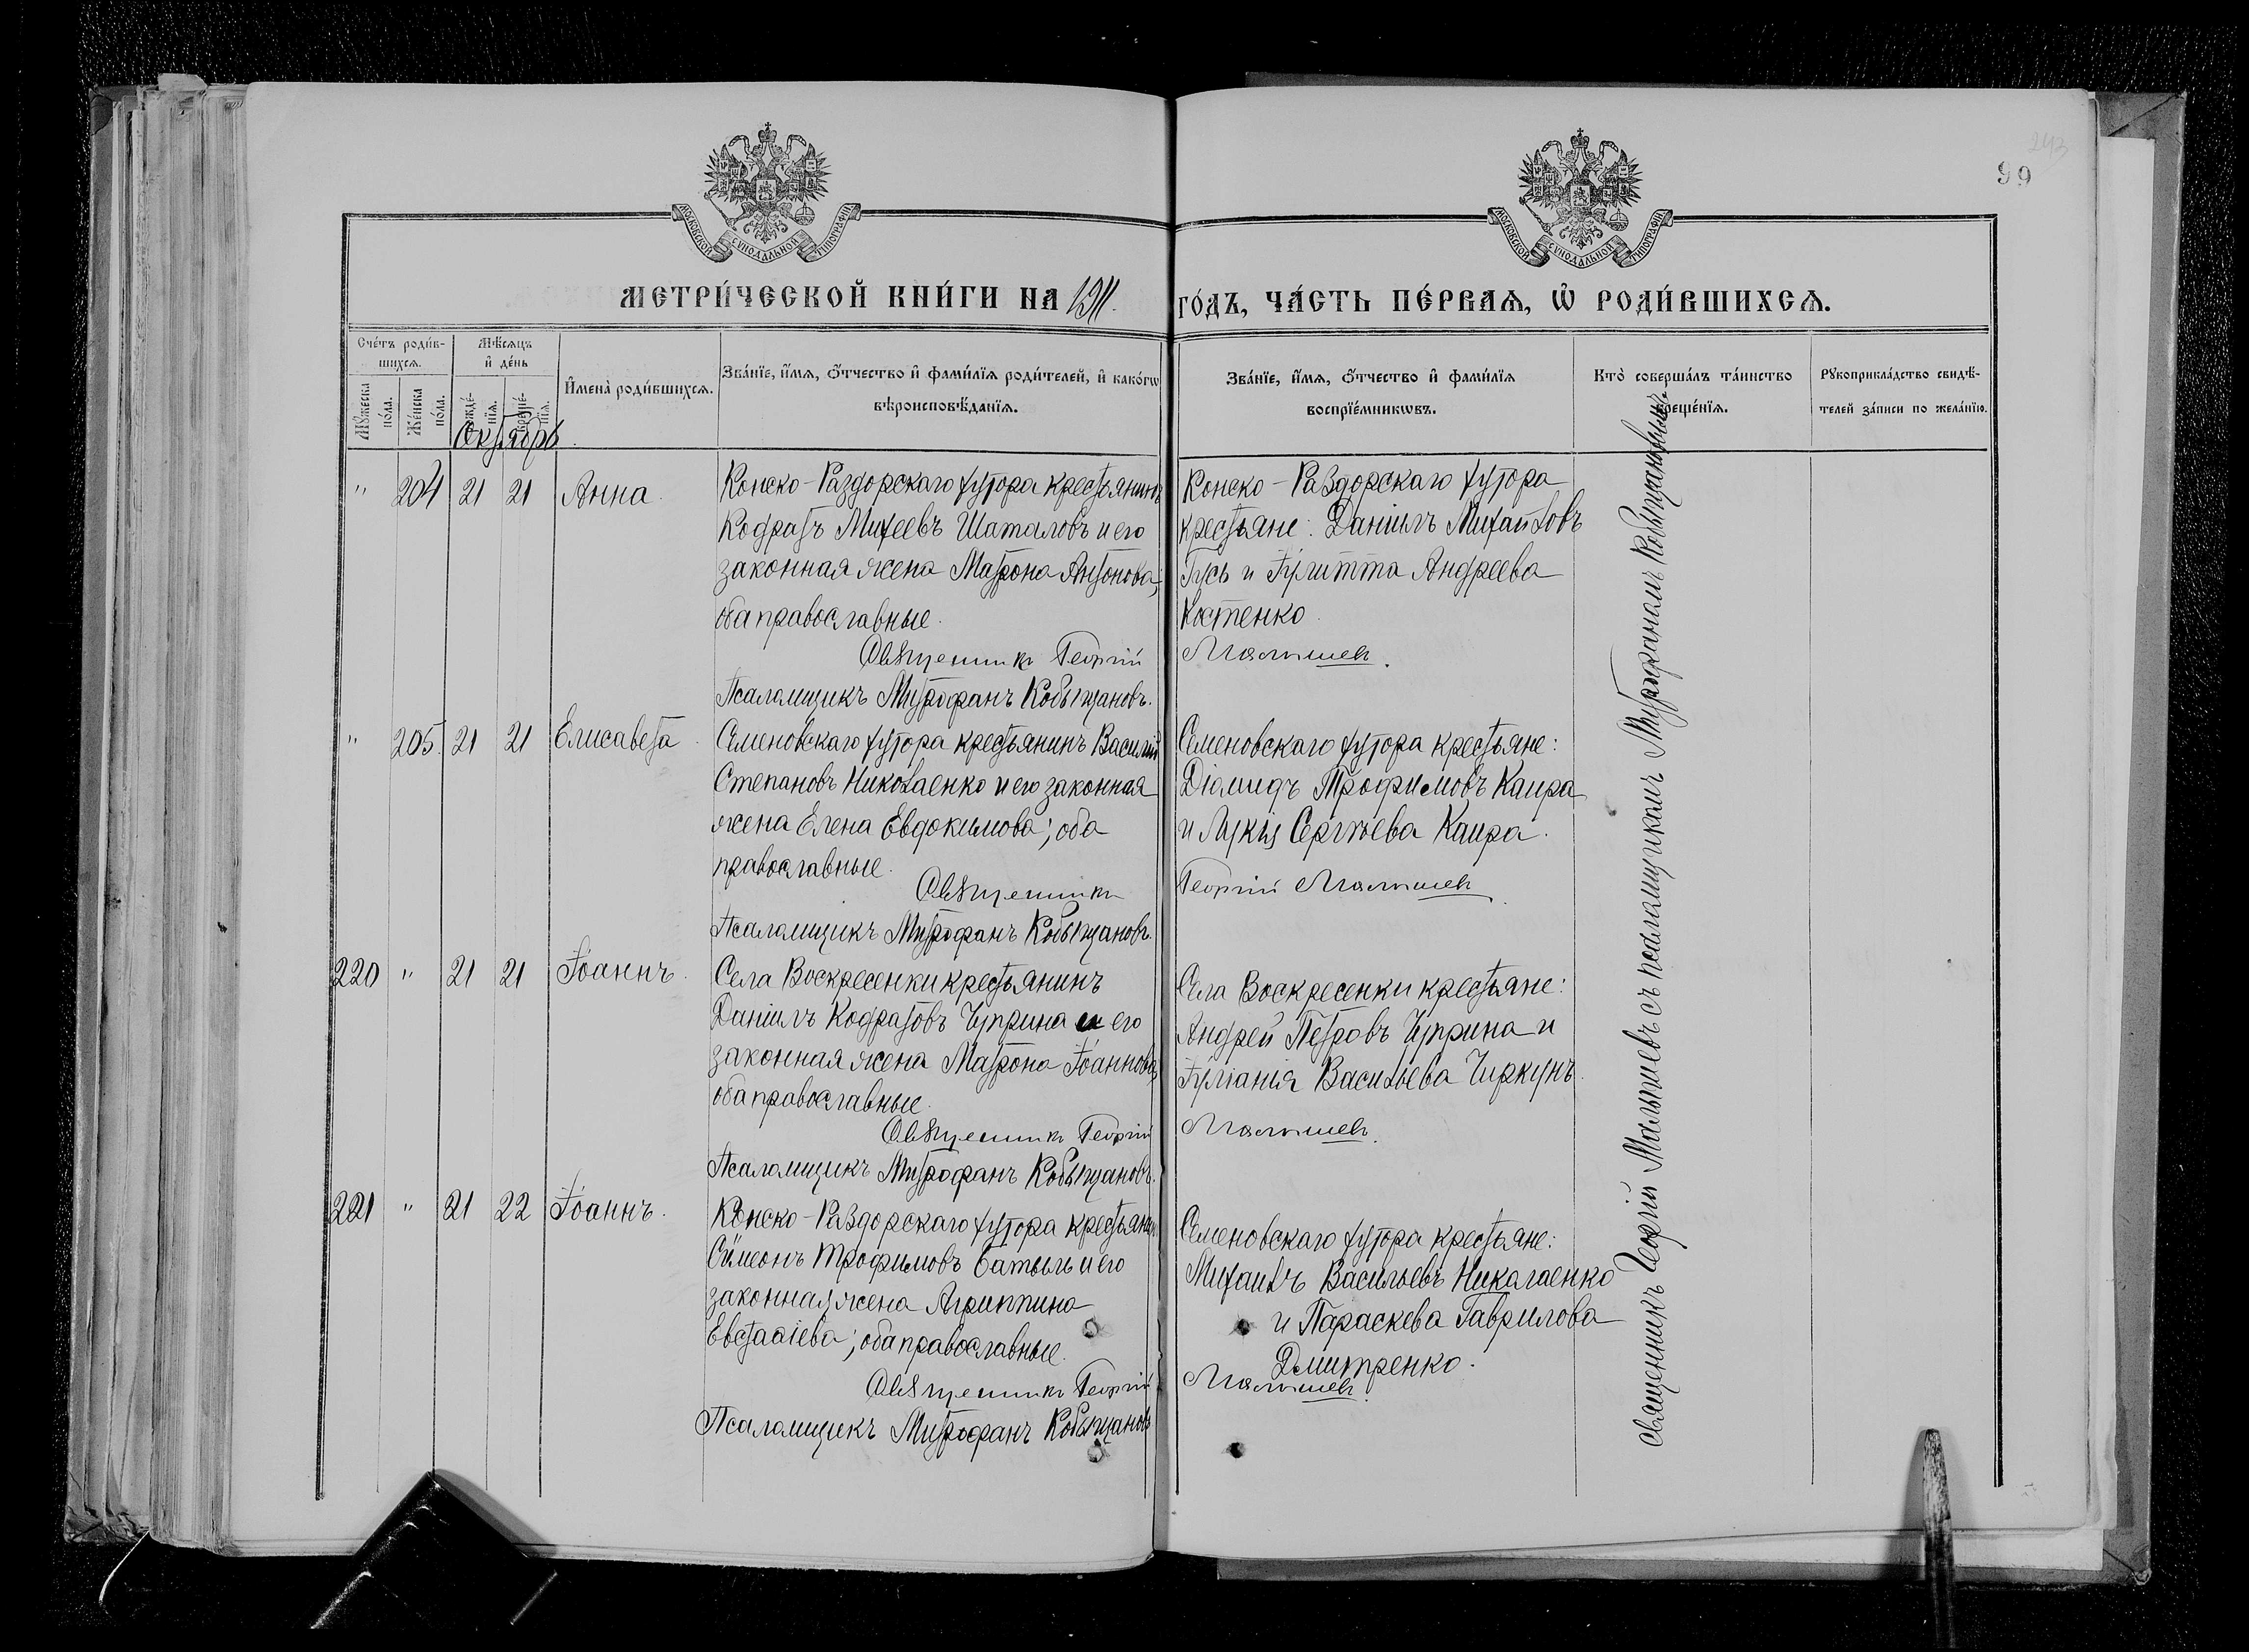 243
99
МОСКОВСКОЙ СѴНОДАЛЬНОЙ ТИПОГРАФІИ
МОСКОВСКОЙ СѴНОДАЛЬНОЙ ТИПОГРАФІИ
МЕТРИ́ЧЕСКОЙ КНИ́ГИ НА 1911.
ГО́ДЪ, ЧА́СТЬ ПЕ́РВАѦ, Ѡ҆ РОДИ́ВШИХСѦ.
Сче́тъ роди́в-
шихсѧ.
Мѣ́сѧцъ
и҆ де́нь
Мꙋ́жеска
по́ла.
Же́нска
по́ла.
рожде́-
нїѧ.
креще́-
нїѧ.
И҆мена̀ роди́вшихсѧ.
Зва́нїе, и҆́мѧ, ѻ҆́тчество и҆ фами́лїѧ роди́телей, и҆ како́гѡ
вѣроисповѣ́данїѧ.
Зва́нїе, и҆́мѧ, ѻ҆́тчество и҆ фами́лїѧ
воспрїе́мникѡвъ.
Кто̀ соверша́лъ та́инство
креще́нїѧ.
Рꙋкоприкла́дство свидѣ́-
телей за́писи по жела́нїю.
Октябрь.
" 204 21 21 Анна.
Конско-Раздорскаго хутора крестьянинъ
Кодратъ Михеевъ Шаталовъ и его
законная жена Матрона Антонова;
оба православные.
Священникъ Георгій
Псаломщикъ Митрофанъ Кобыщановъ.
Конско-Раздорскаго хутора
крестьяне: Даніилъ Михайловъ
Гусь и Іулитта Андреева
Костенко.
Малышевъ.
" 205. 21 21 Елисавета.
Семеновскаго хутора крестьянинъ Василій
Степановъ Николаенко и его законная
жена Елена Евдокимова; оба
православные.
Священникъ
Псаломщикъ Митрофанъ Кобыщановъ.
Семеновскаго хутора крестьяне:
Діамидъ Трофимовъ Каира
и Лукія Сергіева Каира.
Георгій Малышевъ.
220 " 21 21 Іоаннъ.
Села Воскресенки крестьянинъ
Даніилъ Кодратовъ Чуприна и его
законная жена Матрона Іоаннова;
оба православные.
Священникъ Георгій
Псаломщикъ Митрофанъ Кобыщановъ.
Села Воскресенки крестьяне:
Андрей Петровъ Чуприна и
Іуліанія Васильева Чиркунъ.
Малышевъ.
221 " 21 22 Іоаннъ.
Конско-Раздорскаго хутора крестьянинъ
Сѵмеонъ Трофимовъ Батыль и его
законная жена Агриппина
Евстафіева; оба православные.
Священникъ Георгій
Псаломщикъ Митрофанъ Кобыщановъ
Семеновскаго хутора крестьяне:
Михаилъ Васильевъ Николаенко
и Параскева Гаврилова
Дмитренко.
Малышевъ.
Священникъ Георгій Малышевъ съ псаломщикомъ Митрофаномъ Кобыщановымъ.